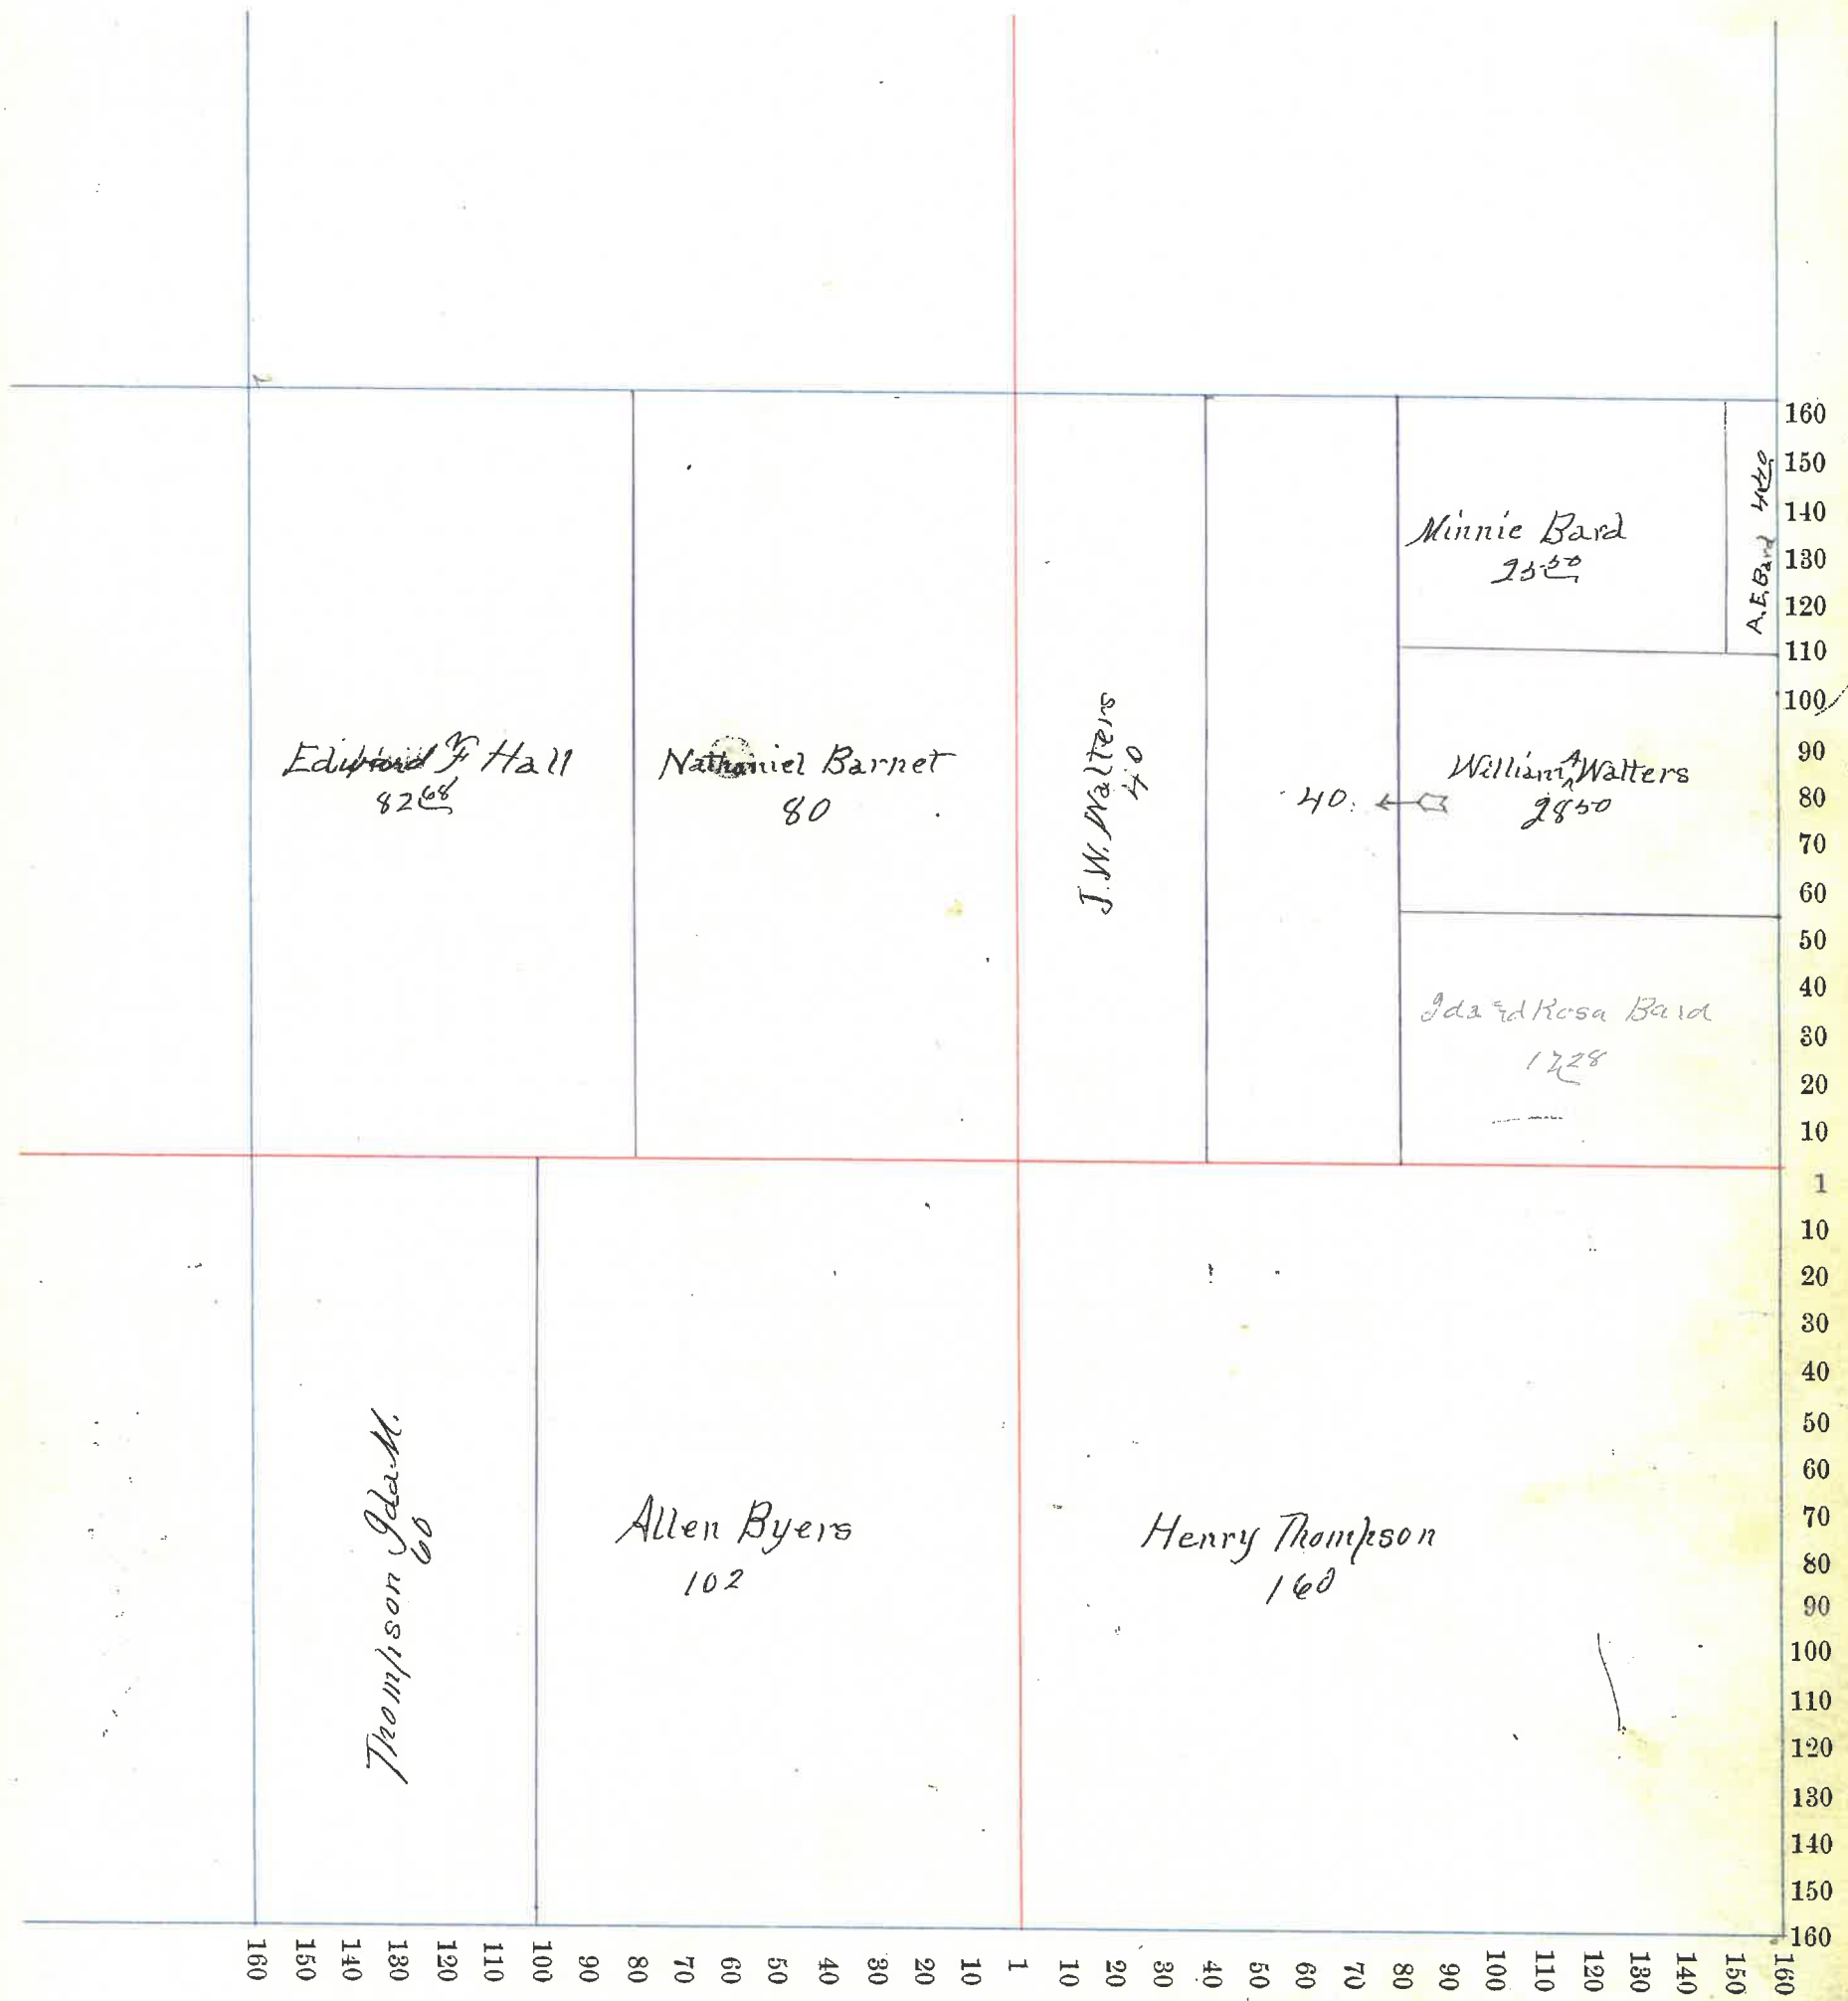 Hall
82 68
Nathaniel Barnet
80
J.W. Walters
40
40
Minnie Bard
A.E. Bard 4 40
William A Walters
28 50
Ida and Rosa Bard
Thompson Ida M.
60
Allen Byers
102
Henry Thompson
160
160
150
140
130
120
110
100
90
80
70
60
50
40
30
20
10
1
10
20
30
40
50
60
70
80
90
100
110
120
130
140
150
160
160 150 140 130 120 110 100 90 80 70 60 50 40 30 20 10 1 10 20 30 40 50 60 70 80 90 100 110 120 130 140 150 160